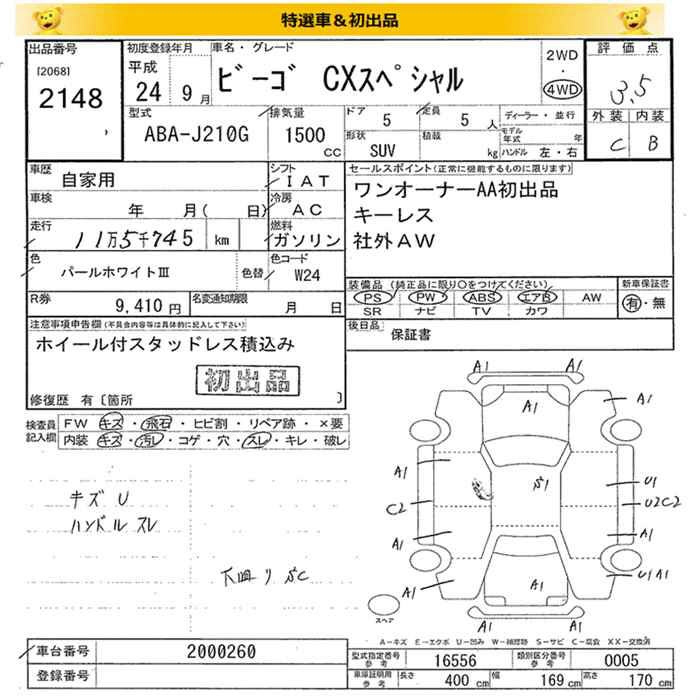 特選車&初出品
出品番号
[2068]
2148
初度登録年月
平成
24 9月
車名・グレード
ビーゴ CXスペシャル
2WD
・
4WD
評価点
3.5
外装 内装
C B
型式
ABA-J210G
排気量
1500
CC
ドア
5
定員
5 人
形状
SUV
積載
kg
ディーラー・並行
モデル年式 年
ハンドル 左・右
車歴
自家用
シフト
IAT
車検
年 月( 日)
冷房
AC
走行
11万5千745 km
燃料
ガソリン
色
パールホワイトⅢ
色替
色コード
W24
R券
9,410円
名変通知期限
月 日
セールスポイント(正常に機能するものに限ります)
ワンオーナーAA初出品
キーレス
社外AW
装備品 (純正品に限り○をつけてください)
PS PW ABS エアB AW
SR ナビ TV カワ
新車保証書
有・無
後日品
保証書
注意事項申告欄(不具合内容等は具体的に記入して下さい)
ホイール付スタッドレス積込み
初出品
修復歴 有〔箇所 〕
検査員記入欄
FW キズ・飛石・ヒビ割・リペア跡・×要
内装 キズ・汚レ・コゲ・穴・スレ・キレ・破レ
キズ U
ハンドルスレ
下廻り
A1 A1
A1 A1
A1
A1 U1
C2 U2C2
A1 A1
A1 A1 U1A1
A1 A1
スペア
A-キズ E-エクボ U-凹み W-補修跡 S-サビ C-腐食 XX-交換済
車台番号
2000260
登録番号
型式指定番号
参考
16556
類別区分番号
参考
0005
車庫証明用
参考
長さ 400 cm 幅 169 cm 高さ 170 cm